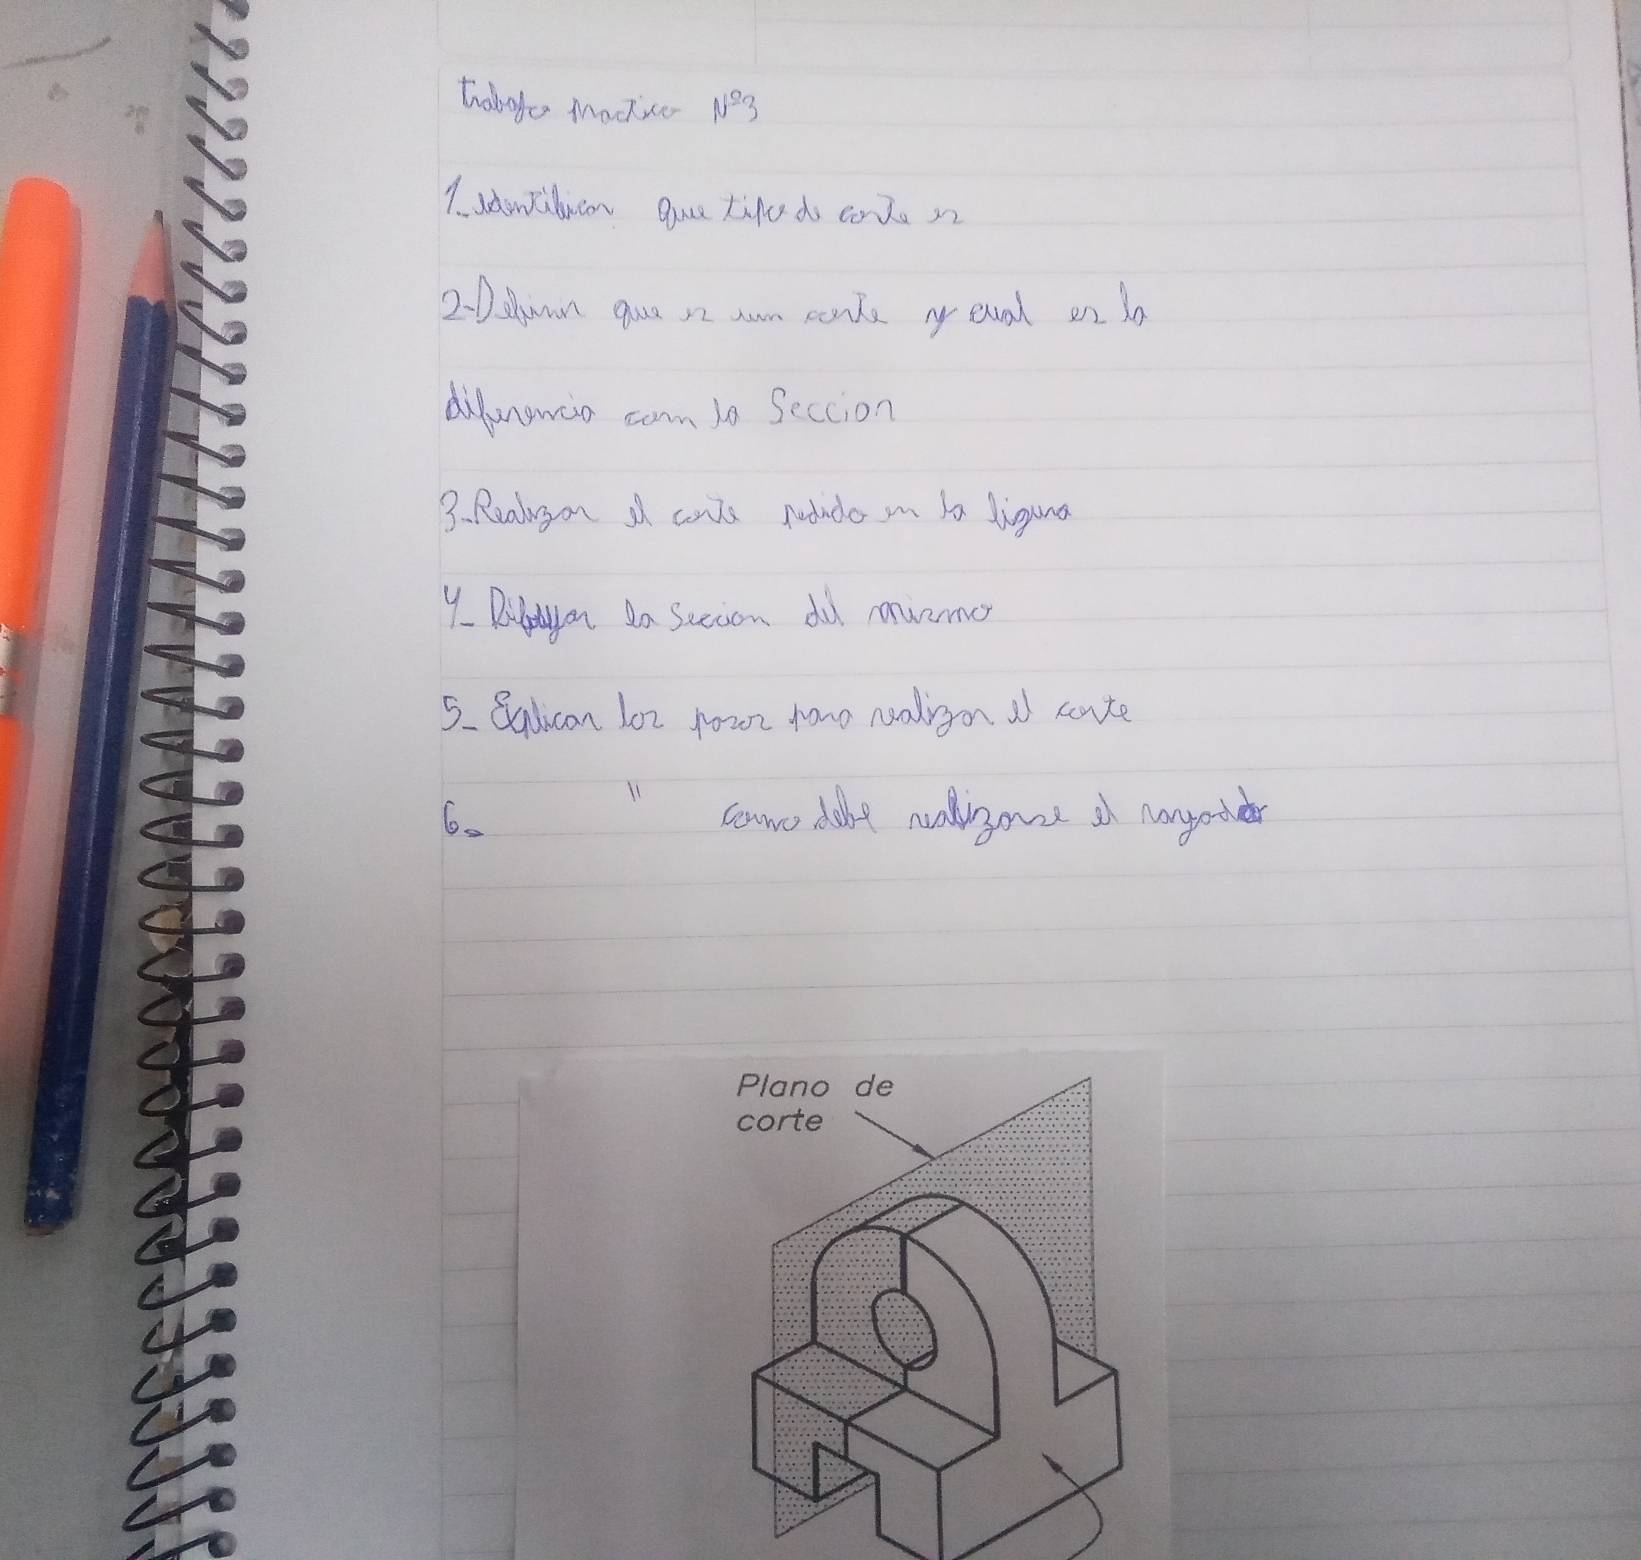 Trabajo Practico Nº3
1. Identificar que tipo de corte es
2-Definir que es un corte y cual es la
diferencia con la Seccion
3. Realizar el corte pedido en la figura
4- Dibujar la Seccion del mismo
5- Explicar los pasos para realizar el corte
6. " como debe realizarse el rayado
Plano de
corte